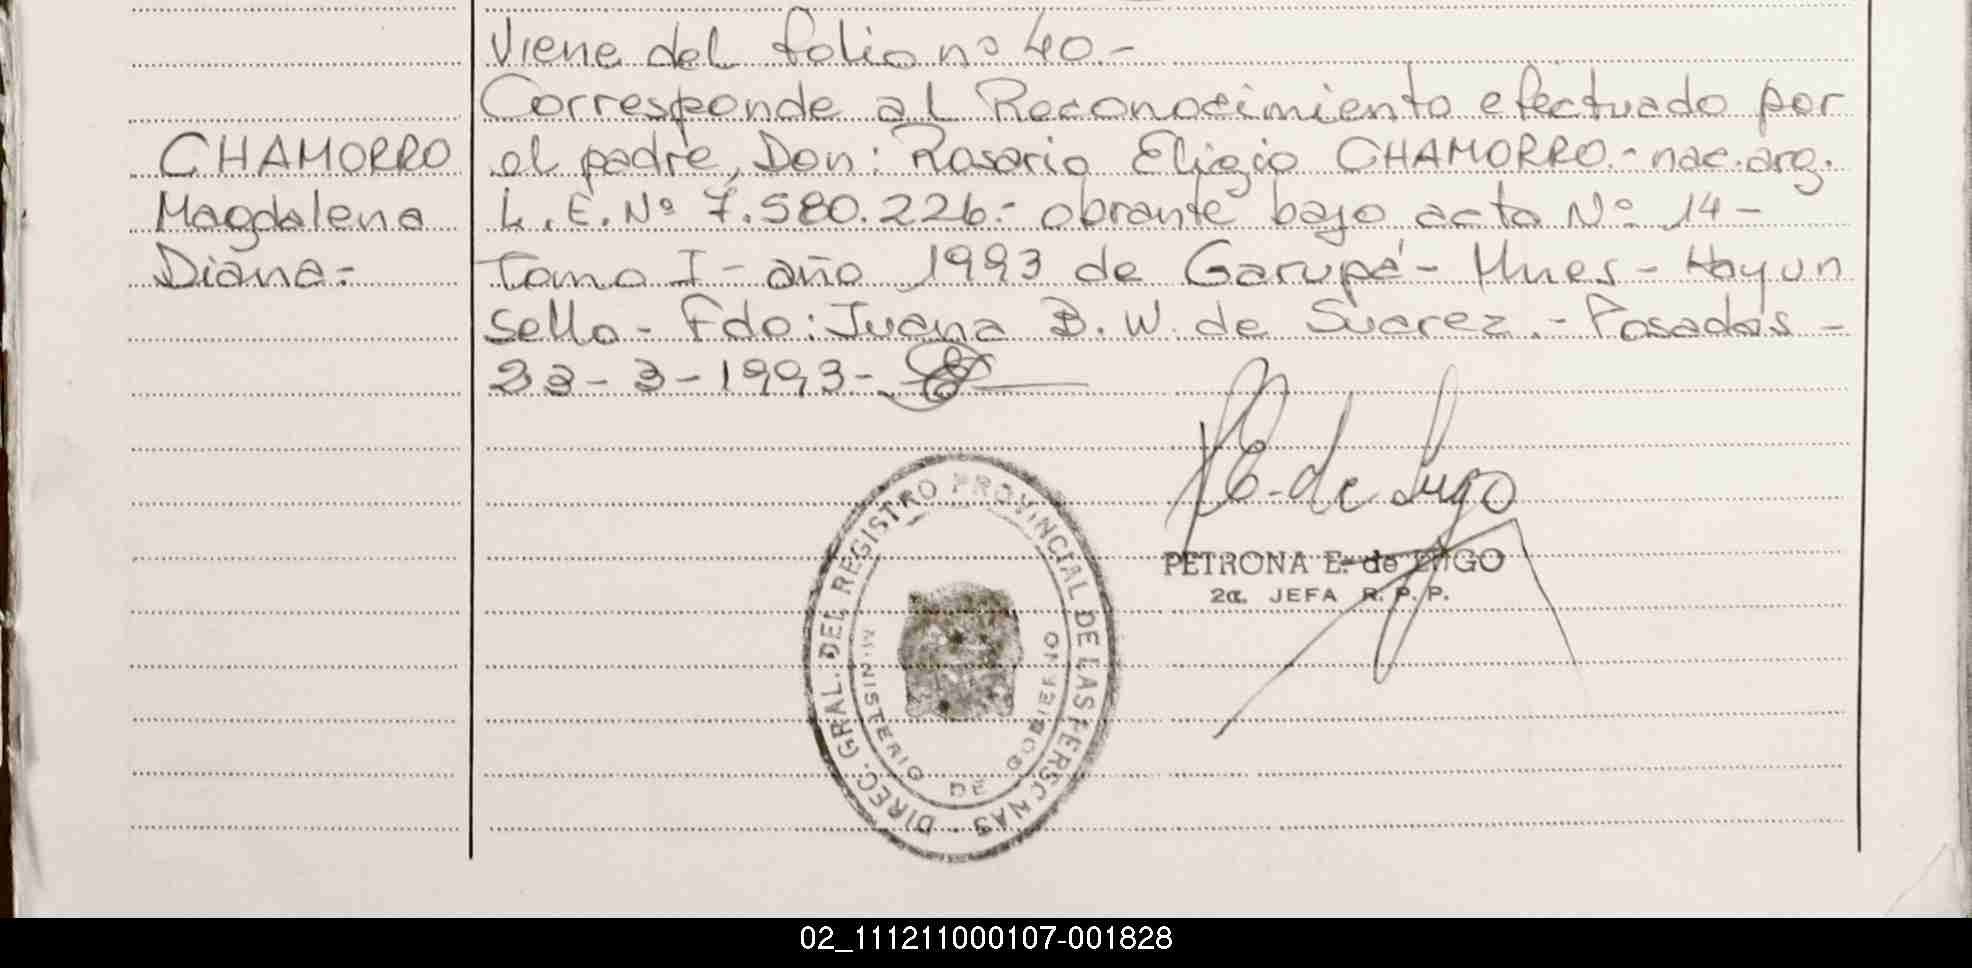 Viene del folio nº 40.-
Corresponde al Reconocimiento efectuado por
CHAMORRO el padre, Don: Rosario Eligio CHAMORRO.- nac. arg.
Magdalena L.E. Nº 7.580.226.- obrante bajo acta Nº 14 -
Diana.- Tomo I - año 1993 de Garupá - Mnes - Hay un
sello - Fdo: Juana B. W. de Suarez.- Posadas -
23 - 3 - 1993 -
E. de Lugo
PETRONA E. de LUGO
2a. JEFA R. P. P.
DIREC. GRAL. DEL REGISTRO PROVINCIAL DE LAS PERSONAS
MINISTERIO DE GOBIERNO
02_111211000107-001828